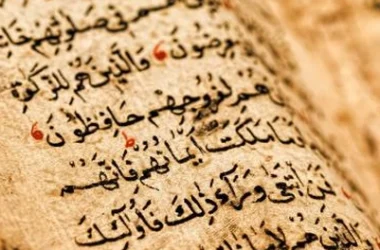 هم في صلاتهم خا
عرضون والذين هم للزكوة
هم لفروجهم حافظون
ما ملكت أيمانهم فإنهم
فمن ابتغى وراء ذلك فأولئك
والذين هم لأ